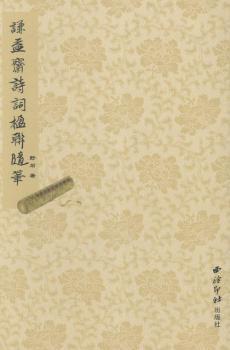 謙益齋詩詞楹聯隨筆
舒羽 著
西泠印社
出版社